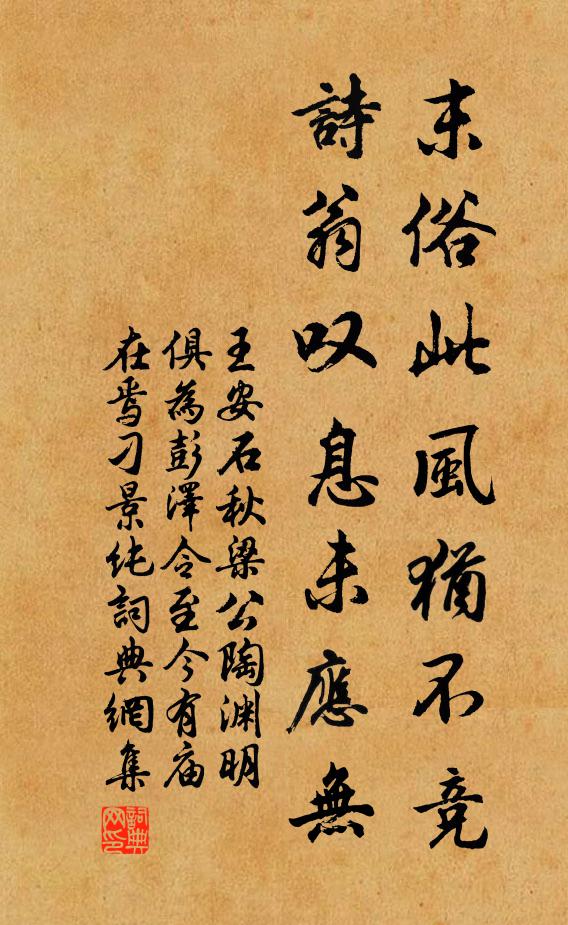 末俗此風猶不竞
詩翁叹息未應無
王安石秋梁公陶渊明
俱為彭澤令至今有庙
在焉刁景纯詞典網集
詞典网印